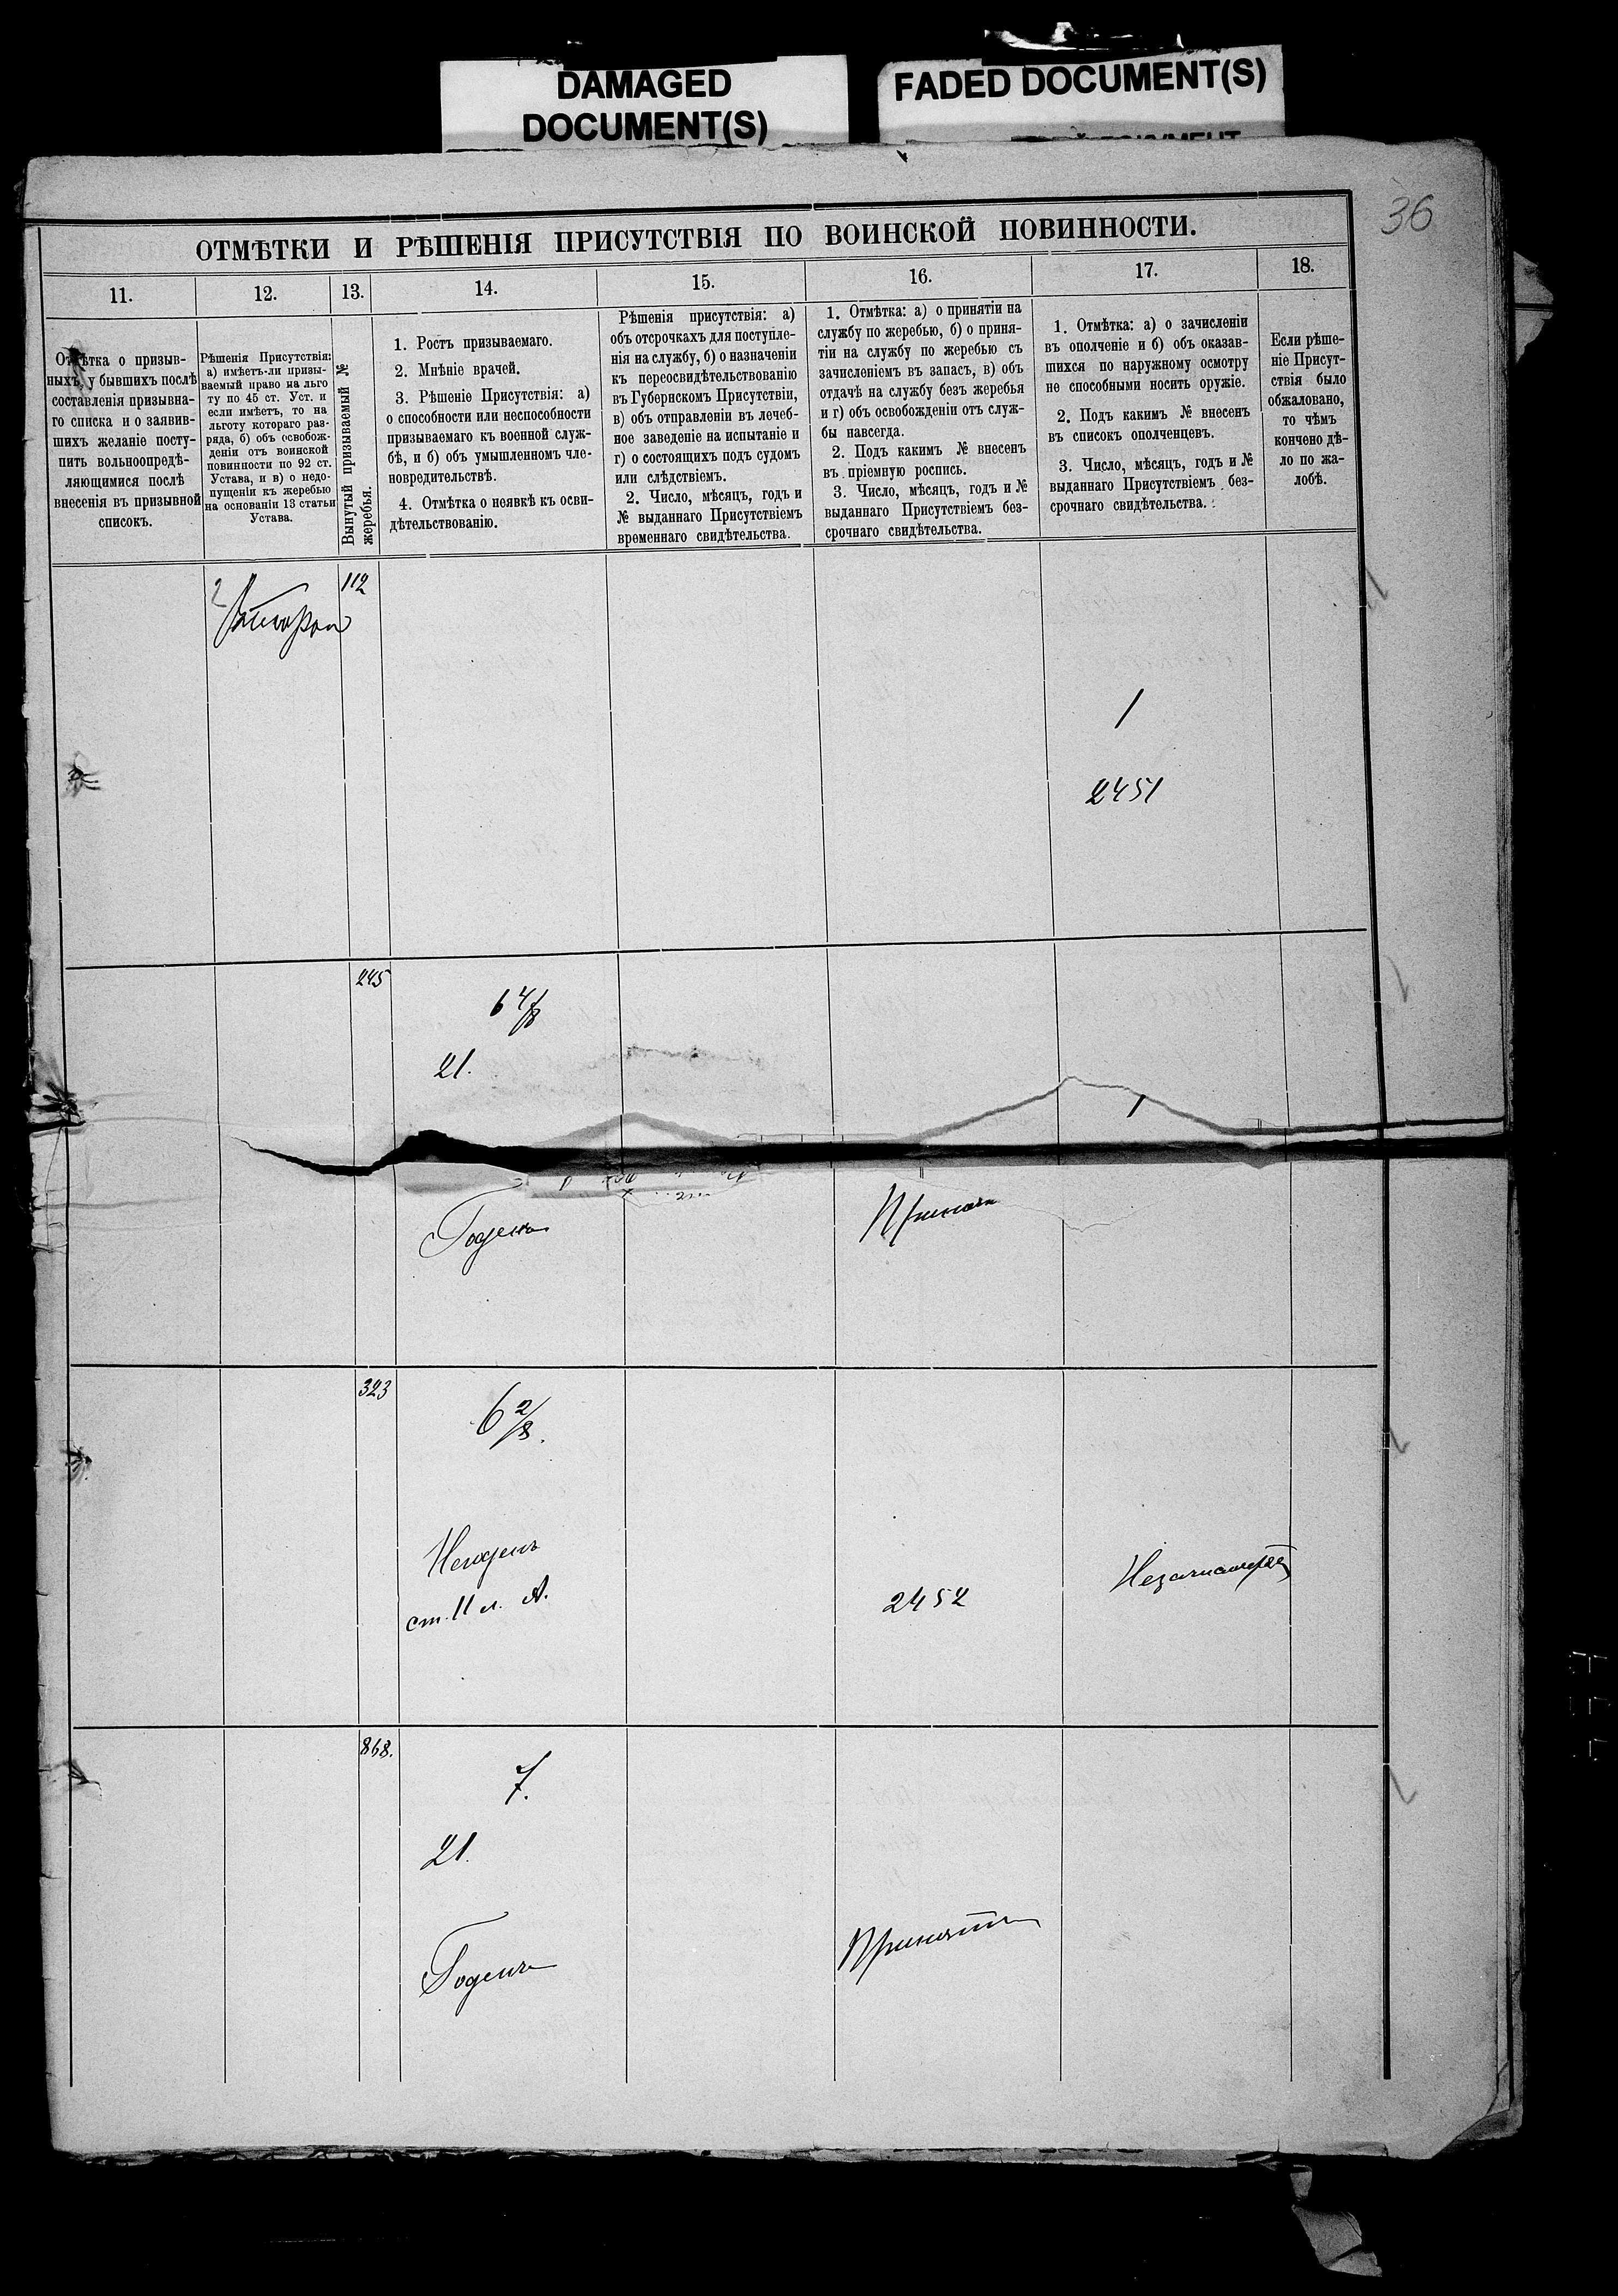 DAMAGED
DOCUMENT(S)
FADED DOCUMENT(S)
36
ОТМѢТКИ И РѢШЕНІЯ ПРИСУТСТВІЯ ПО ВОИНСКОЙ ПОВИННОСТИ.
11.
12.
13.
14.
15.
16.
17.
18.
Отмѣтка о призыв-
ныхъ, у бывшихъ послѣ
составленія призывна-
го списка и о заявив-
шихъ желаніе посту-
пить вольноопредѣ-
ляющимися послѣ
внесенія въ призывной
списокъ.
Рѣшенія Присутствія:
а) имѣетъ-ли призы-
ваемый право на льго
ту по 45 ст. Уст. и
если имѣетъ, то на
льготу котораго раз-
ряда, б) объ освобож-
деніи отъ воинской
повинности по 92 ст.
Устава, и в) о недо-
пущеніи къ жеребью
на основаніи 13 статьи
Устава.
Вынутый призываемый №
жеребья.
1. Ростъ призываемаго.
2. Мнѣніе врачей.
3. Рѣшеніе Присутствія: а)
о способности или неспособности
призываемаго къ военной служ-
бѣ, и б) объ умышленномъ чле-
новредительствѣ.
4. Отмѣтка о неявкѣ къ осви-
дѣтельствованію.
Рѣшенія присутствія: а)
объ отсрочкахъ для поступле-
нія на службу, б) о назначеніи
къ переосвидѣтельствованію
въ Губернскомъ Присутствіи,
в) объ отправленіи въ лечеб-
ное заведеніе на испытаніе и
г) о состоящихъ подъ судомъ
или слѣдствіемъ.
2. Число, мѣсяцъ, годъ и
№ выданнаго Присутствіемъ
временнаго свидѣтельства.
1. Отмѣтка: а) о принятіи на
службу по жеребью, б) о приня-
тіи на службу по жеребью съ
зачисленіемъ въ запасъ, в) объ
отдачѣ на службу безъ жеребья
и г) объ освобожденіи отъ служ-
бы навсегда.
2. Подъ какимъ № внесенъ
въ пріемную роспись.
3. Число, мѣсяцъ, годъ и №
выданнаго Присутствіемъ без-
срочнаго свидѣтельства.
1. Отмѣтка: а) о зачисленіи
въ ополченіе и б) объ оказав-
шихся по наружному осмотру
не способными носить оружіе.
2. Подъ какимъ № внесенъ
въ списокъ ополченцевъ.
3. Число, мѣсяцъ, годъ и №
выданнаго Присутствіемъ без-
срочнаго свидѣтельства.
Если рѣше-
ніе Присут-
ствія было
обжаловано,
то чѣмъ
кончено дѣ-
ло по жа-
лобѣ.
112
1
2451
245
6 4/8
21.
1
Годенъ
Принятъ
323
6 2/8.
Негоденъ
ст. 11 л. А.
2452
868.
7.
21.
Годенъ
Принятъ